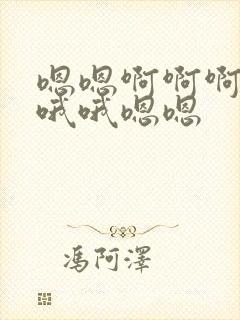 嗯嗯啊啊啊
哦哦嗯嗯
馮阿澤